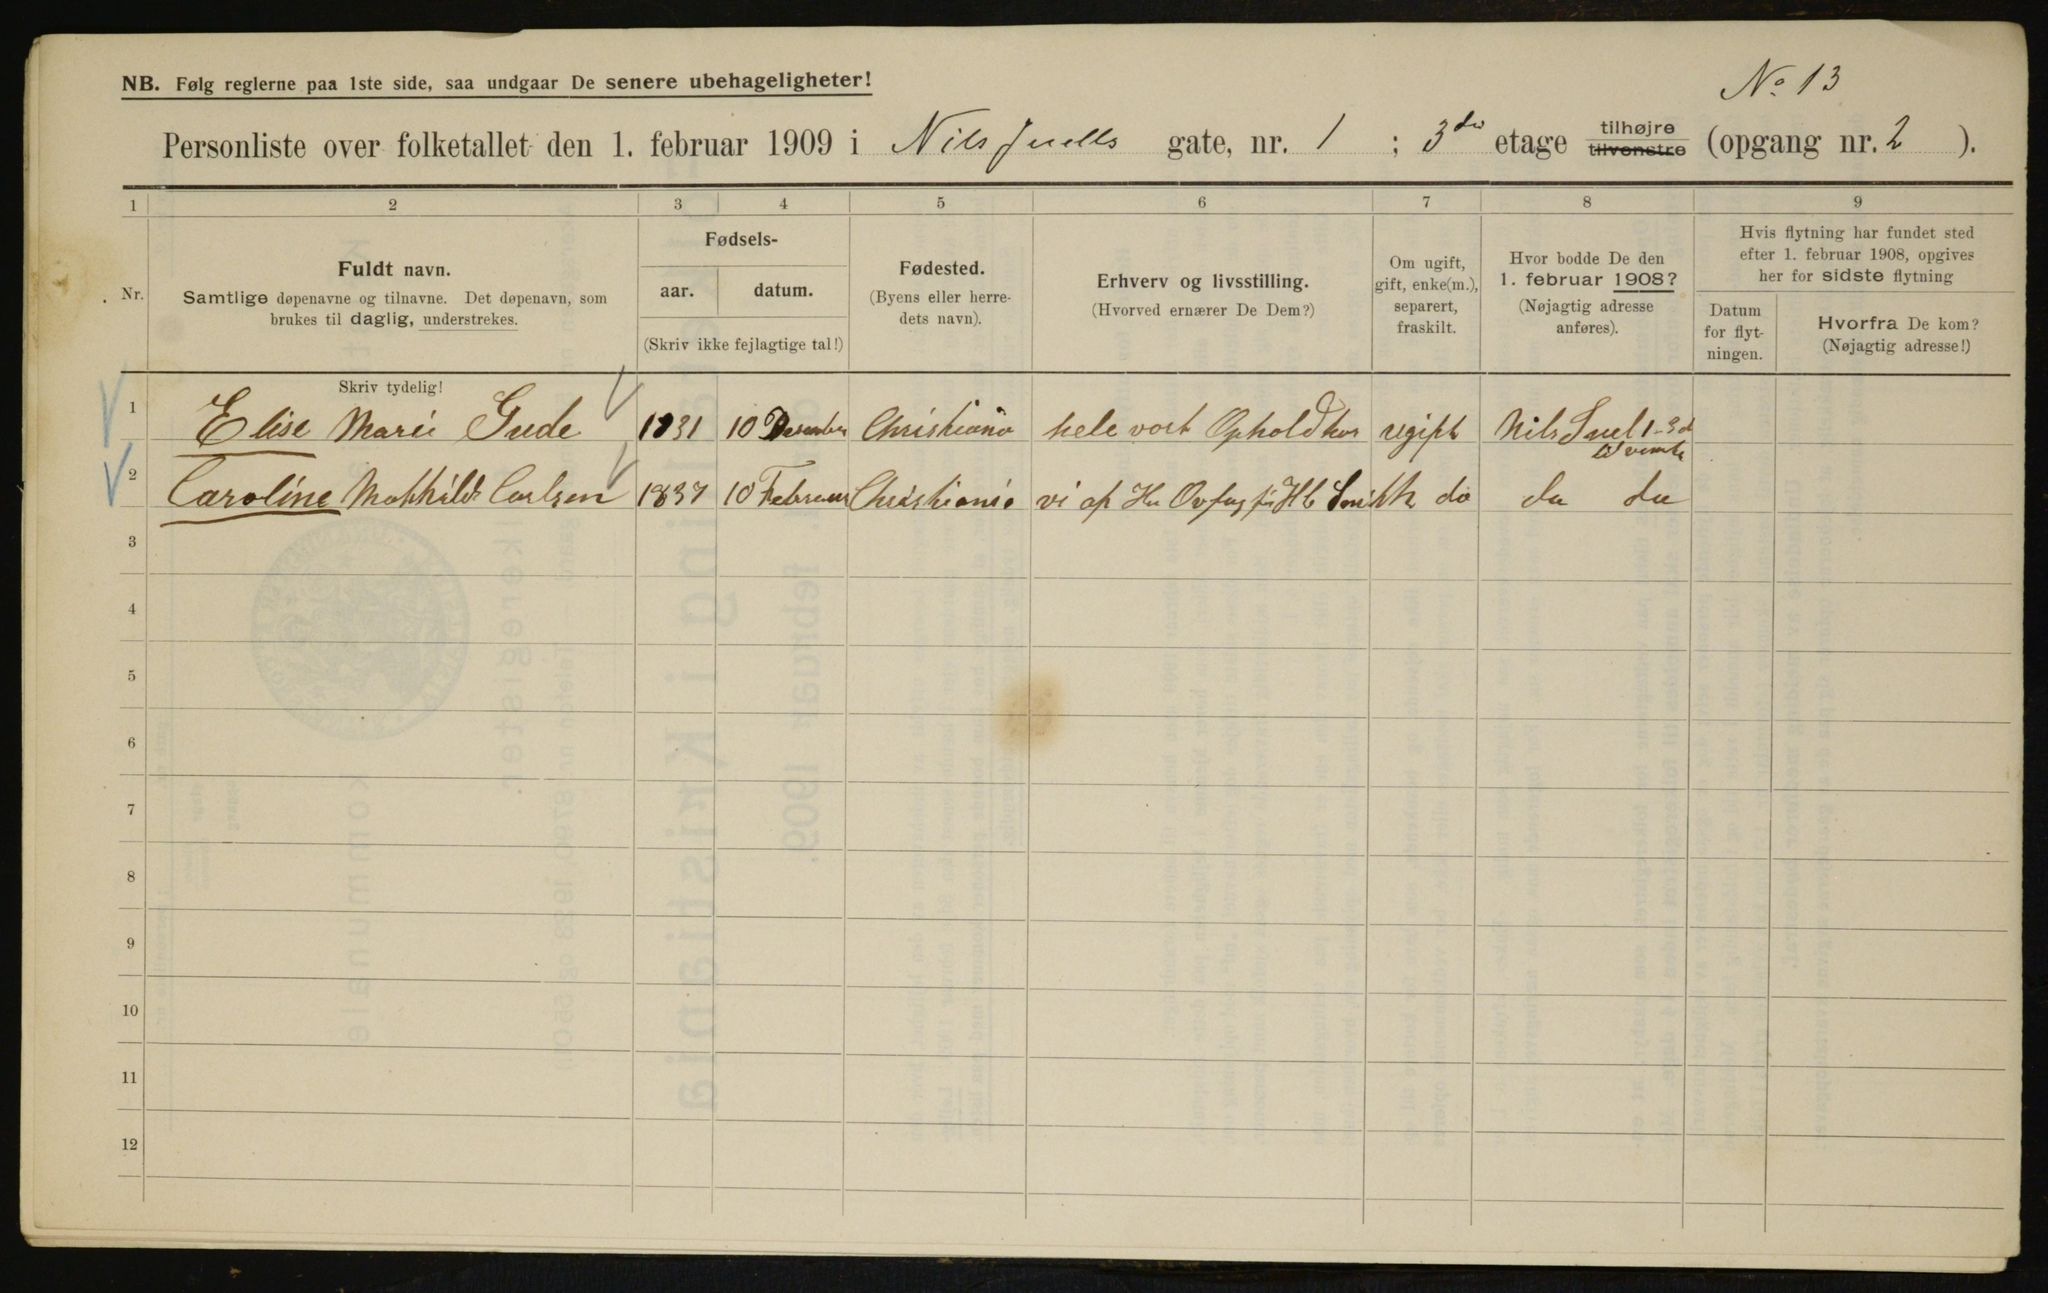 No 13
NB. Følg reglerne paa 1ste side, saa undgaar De senere ubehageligheter!
Personliste over folketallet den 1. februar 1909 i Nils Juells gate, nr. 1 ; 3die etage tilhøjre tilvenstre (opgang nr. 2 ).
1 2 3 4 5 6 7 8 9
Nr.
Fuldt navn.
Samtlige døpenavne og tilnavne. Det døpenavn, som
brukes til daglig, understrekes.
Skriv tydelig!
Fødsels-
aar. datum.
(Skriv ikke fejlagtige tal!)
Fødested.
(Byens eller herre-
dets navn).
Erhverv og livsstilling.
(Hvorved ernærer De Dem?)
Om ugift,
gift, enke(m.),
separert,
fraskilt.
Hvor bodde De den
1. februar 1908?
(Nøjagtig adresse
anføres).
Hvis flytning har fundet sted
efter 1. februar 1908, opgives
her for sidste flytning
Datum
for flyt-
ningen.
Hvorfra De kom?
(Nøjagtig adresse!)
1 Elise Marie Gude 1831 10 Desember Christiania hele vort Ophold har ugift Nils Juel 1 3d
til venstre
2 Caroline Mathilde Carlsen 1837 10 Februar Christiania vi af Smith do do do
3
4
5
6
7
8
9
10
11
12